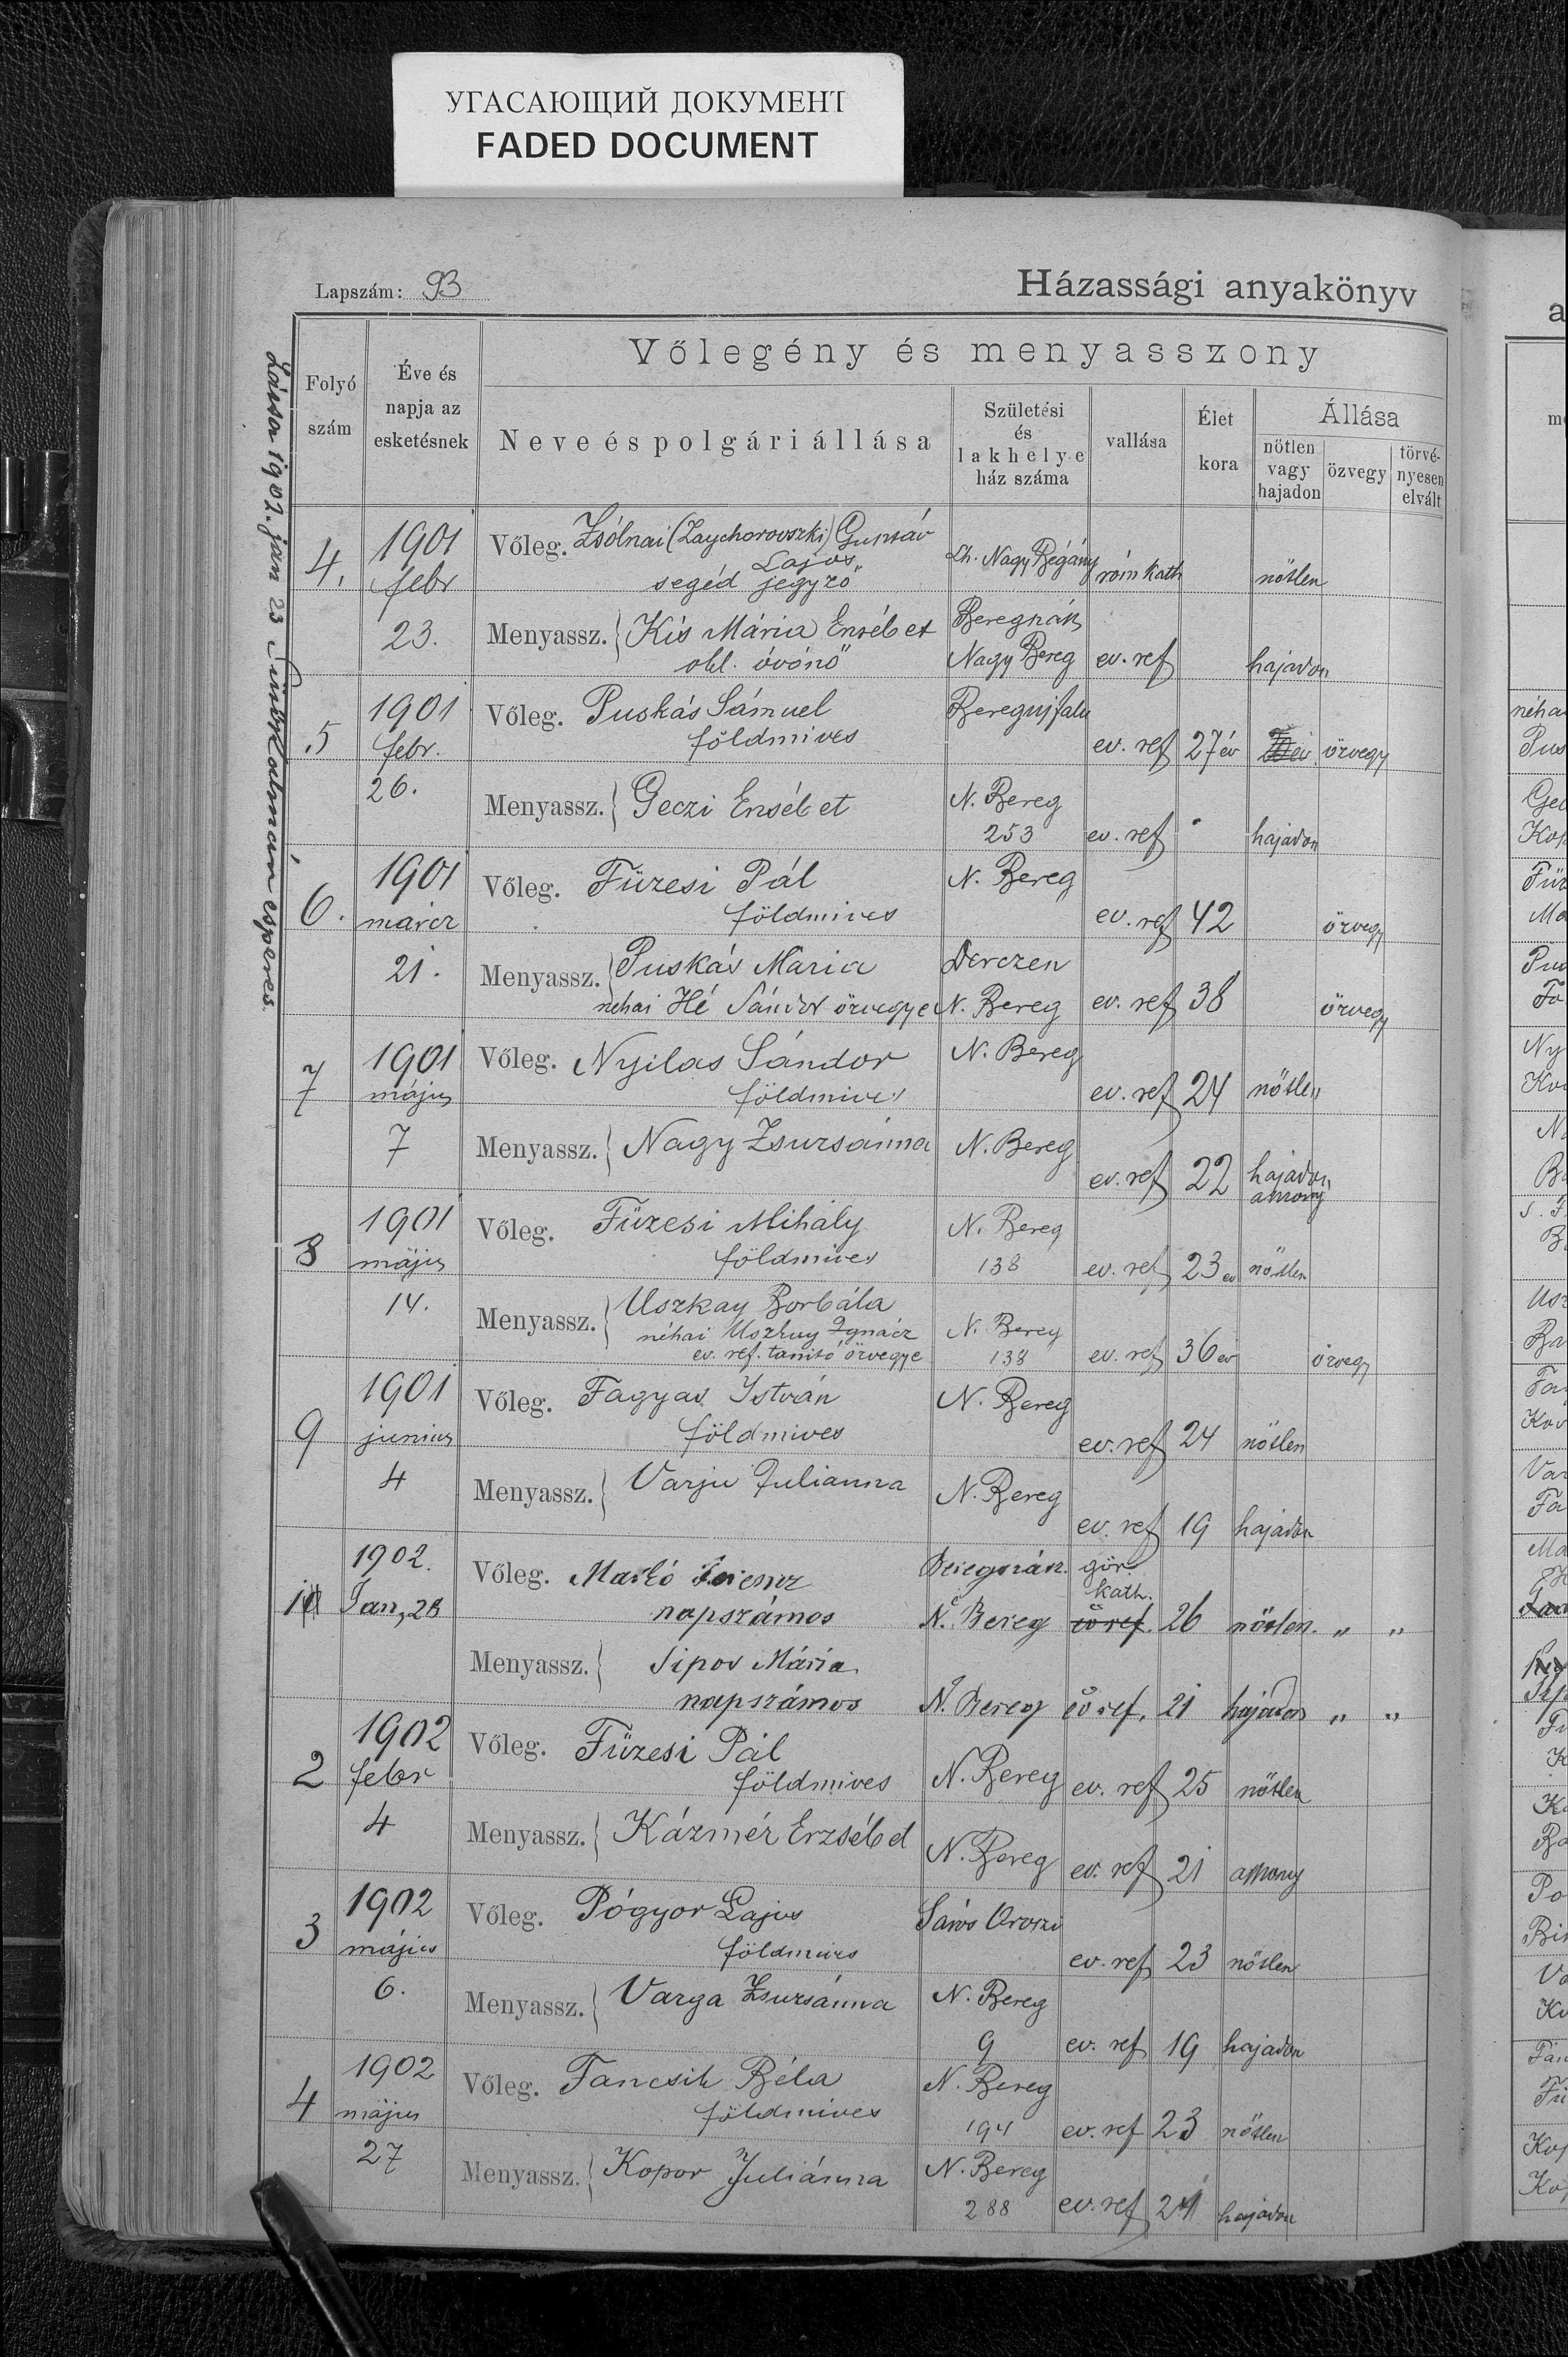 УГАСАЮЩИЙ ДОКУМЕНТ
FADED DOCUMENT
Lapszám: 93
Házassági anyakönyv
Folyó szám
Éve és napja az esketésnek
Vőlegény és menyasszony
Neve és polgári állása
Születési és lakhelye ház száma
vallása
Élet kora
Állása
nőtlen vagy hajadon
özvegy
törvényesen elvált
Láttam 1902. jan 23 esperes
4. 1901 febr 23.
Vőleg. Zsólnai (Zaychorovszki) Gusztáv Lajos segéd jegyző Lh. Nagy Bégány róm kath nőtlen
Menyassz. Kis Mária Erzsébet okl. óvónő Nagy Bereg ev. ref hajadon
5 1901 febr. 26.
Vőleg. Puskás Sámuel földmives Beregujfalu ev. ref 27 év özvegy
Menyassz. Geczi Erzsébet N. Bereg 253 ev. ref hajadon
6. 1901 márcz 21.
Vőleg. Füzesi Pál földmives N. Bereg ev. ref 42 özvegy
Menyassz. Puskás Mária néhai Hé Sándor özvegye Derczen N. Bereg ev. ref 38 özvegy
7 1901 május 7
Vőleg. Nyilas Sándor földmives N. Bereg ev. ref 24 nőtlen
Menyassz. Nagy Zsuzsánna N. Bereg ev. ref 22 hajadon asszony
8 1901 május 14.
Vőleg. Füzesi Mihály földmives N. Bereg 138 ev. ref 23 év nőtlen
Menyassz. Uszkay Borbála néhai Uszkay Ignácz ev. ref. tanító özvegye N. Bereg 138 ev. ref 36 év özvegy
9 1901 junius 4
Vőleg. Fagyas István földmives N. Bereg ev. ref 24 nőtlen
Menyassz. Varju Julianna N. Bereg ev. ref 19 hajadon
1902. Jan, 28
Vőleg. Markó napszámos N. Bereg gör. kath. ev ref. 26 nőtlen. " "
Menyassz. Sipos Mária napszámos N. Bereg ev ref. 21 hajadon " "
2 1902 febr 4
Vőleg. Füzesi Pál földmives N. Bereg ev. ref 25 nőtlen
Menyassz. Kázmér Erzsébet N. Bereg ev. ref 21 asszony
3 1902 május 6.
Vőleg. Pógyor Lajos földmives Sáros Oroszi ev. ref 23 nőtlen
Menyassz. Varga Zsuzsánna N. Bereg 9 ev. ref 19 hajadon
4 1902 május 27
Vőleg. Fancsik Béla földmives N. Bereg 194 ev. ref 23 nőtlen
Menyassz. Kopor Juliánna N. Bereg 288 ev. ref 24 hajadon